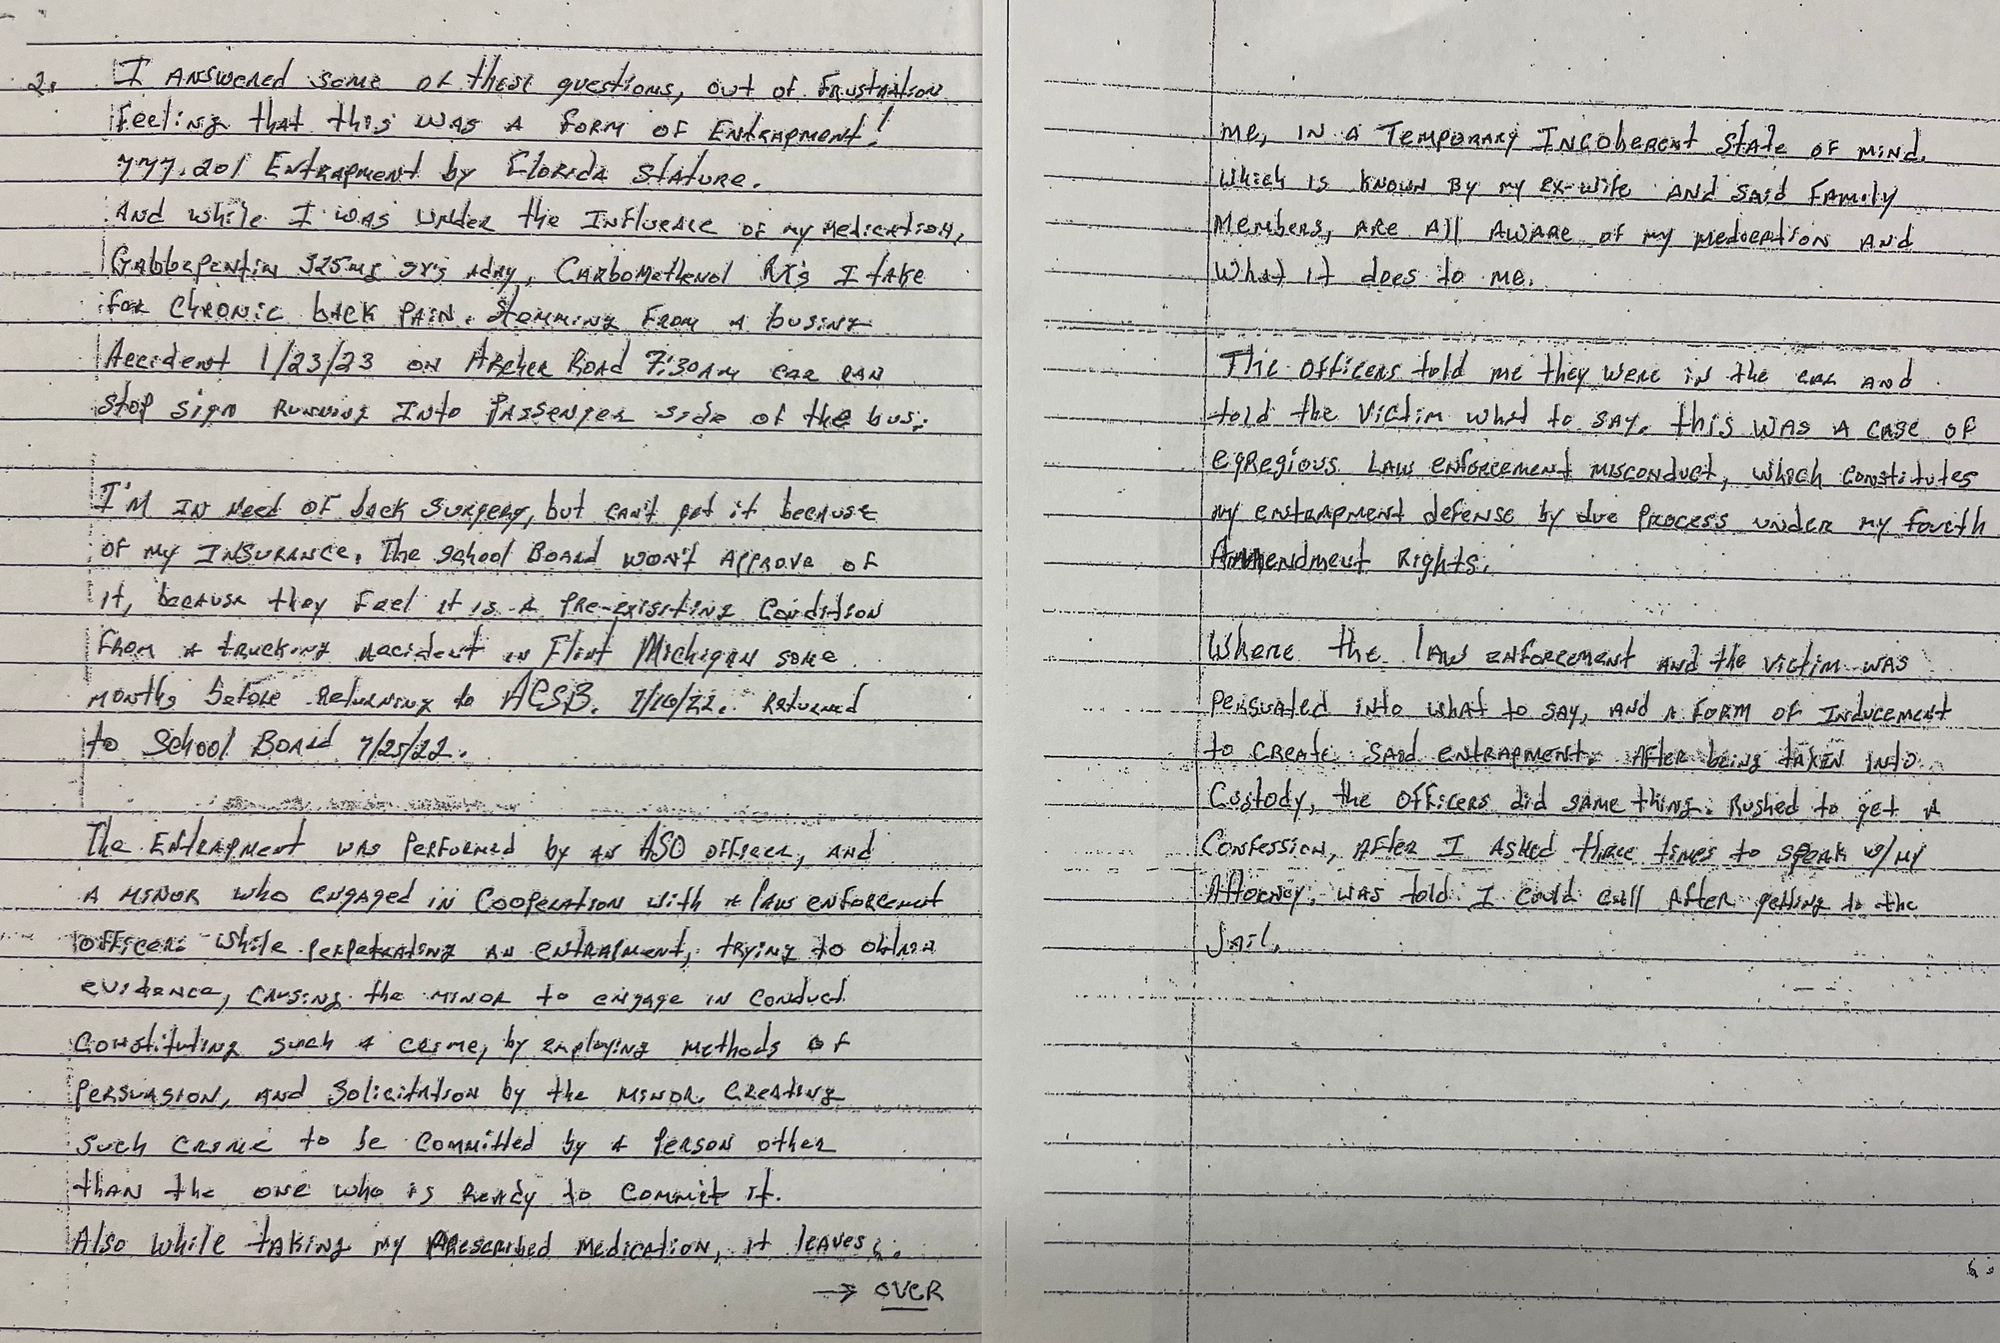 2. I ANSWERED some of these questions, out of FRUSTRATION
Feeling that this WAS A FORM OF ENTRAPMENT!
777.201 ENTRAPMENT by FLORIDA STATURE.
AND while I WAS UNDER the INFLUENCE OF my MEDICATION,
GABBEPENTIN 325mg 3x's ADAY, CARBOMETHENOL RX's I tAKE
for CHRONIC bACK PAIN. Stemming FROM A busing
Accident 1/23/23 ON ARCHER ROAD 7:30AM CAR RAN
Stop sign RUNNING INto PASSENGER side of the bus.
I'M IN Need OF back SURGERY, but CAN't get it because
OF my INSURANCE. The School BOARD WON't Approve OF
It, because they Feel it is A PRE-exisiting Condition
From A tRucking Accident in Flint Michigan some
months before Returning to ACSB. 7/26/22. Returned
to School BOARD 7/25/22.
The ENtRAPMENT WAS PERFORMED by AN ASO officer, AND
A MINOR who ENGAGED IN COOPERATION with A law ENFORCEMENT
OFFICER. While PERPETRATING AN ENTRAPMENT, tRying to obtain
EVIDENCE, CAUSING the MINOR to ENGAGE IN CONDUCT
Constituting such A CRIME, by EMPLOYING METHODS OF
PERSUASION, AND Solicitation by the MINOR. CREATING
Such CRIME to be Committed by A PERSON other
than the ONE who is READY to COMMIT it.
Also while TAKING my PRESCRIBED MEDICATION, it leaves
→ OVER
me, IN A TEMPORARY INCOHERENT State OF MIND.
Which is KNOWN By my ex-wife AND SAID FAMILY
Members, ARE All AWARE OF my MEDICATION AND
What it does to me.
The Officers told me they were in the CAR AND
told the Victim what to SAY. this WAS A CASE OF
EGREGIOUS LAW ENFORCEMENT MISCONDUCT, which CONSTITUTES
my ENTRAPMENT defense by due PROCESS UNDER MY fourth
Ammendment Rights.
Where the lAW ENFORCEMENT AND the Victim WAS
PERSUATED INTO what to SAY, AND A FORM OF INDUCEMENT
to CREATE SAID ENTRAPMENT. AFTER being TAKEN INTO
Custody, the OFFICERS did SAME thing. Rushed to get A
CONFESSION, AFTER I ASKED three times to SPEAK w/my
Attorney. WAS told I could call AFTER getting to the
JAIL.